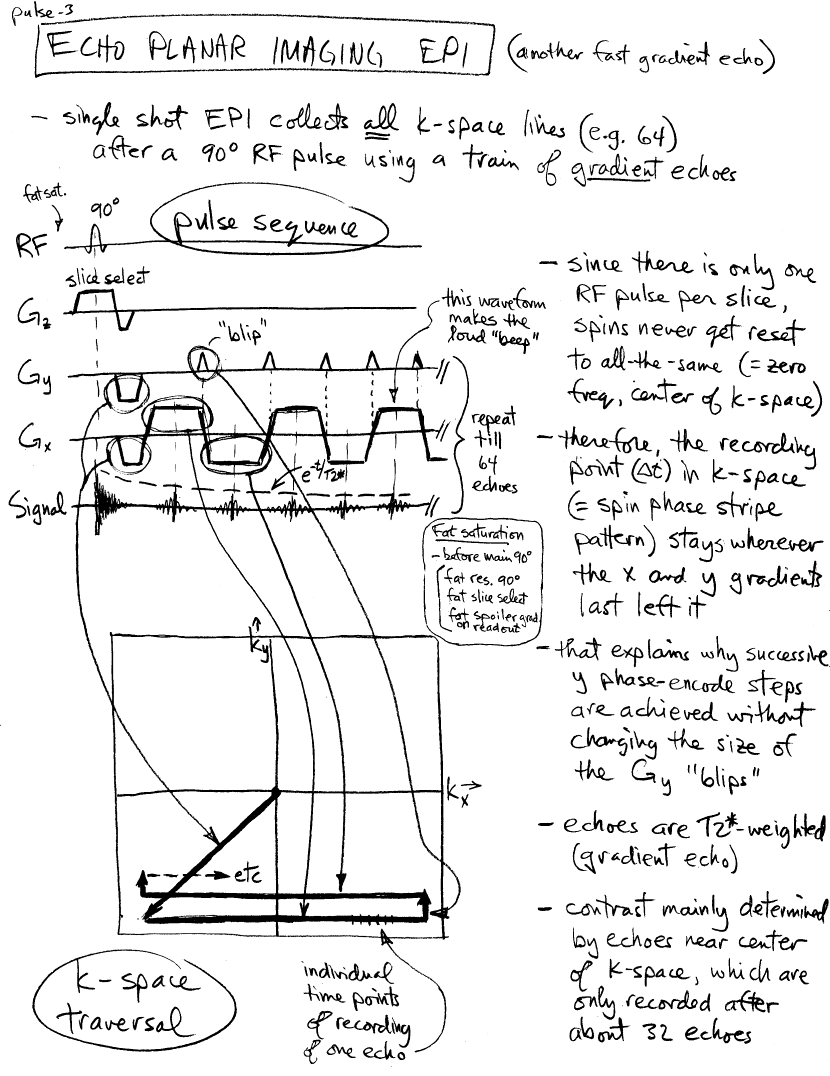 pulse-3
ECHO PLANAR IMAGING EPI (another fast gradient echo)
- single shot EPI collects all k-space lines (e.g. 64)
after a 90° RF pulse using a train of gradient echoes
fat sat.
90°
pulse sequence
RF
slice select
Gz
"blip"
this waveform
makes the
loud "beep"
Gy
Gx
repeat
till
64
echoes
e^-t/T2*
Signal
Fat saturation
- before main 90°
fat res. 90°
fat slice select
fat spoiler grad
on readout
- since there is only one
RF pulse per slice,
spins never get reset
to all-the-same (= zero
freq, center of k-space)
- therefore, the recording
point (Δt) in k-space
(= spin phase stripe
pattern) stays wherever
the x and y gradients
last left it
- that explains why successive
y phase-encode steps
are achieved without
changing the size of
the Gy "blips"
- echoes are T2*-weighted
(gradient echo)
- contrast mainly determined
by echoes near center
of k-space, which are
only recorded after
about 32 echoes
ky
kx
etc
k-space
traversal
individual
time points
of recording
of one echo